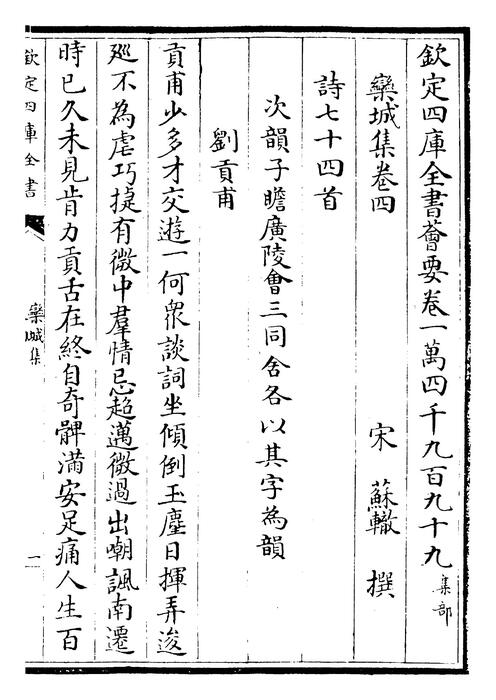 欽定四庫全書薈要卷一萬四千九百九十九 集部
欒城集卷四 宋 蘇轍 撰
詩七十四首
次韻子瞻廣陵會三同舍各以其字為韻
劉貢甫
貢甫少多才交遊一何衆談詞坐傾倒玉麈日揮弄浚
廵不為虐巧㨗有微中羣情忌超邁微過出嘲諷南遷
時已久未見肯力貢舌在終自奇髀滿安足痛人生百
欽定四庫全書
欒城集
一